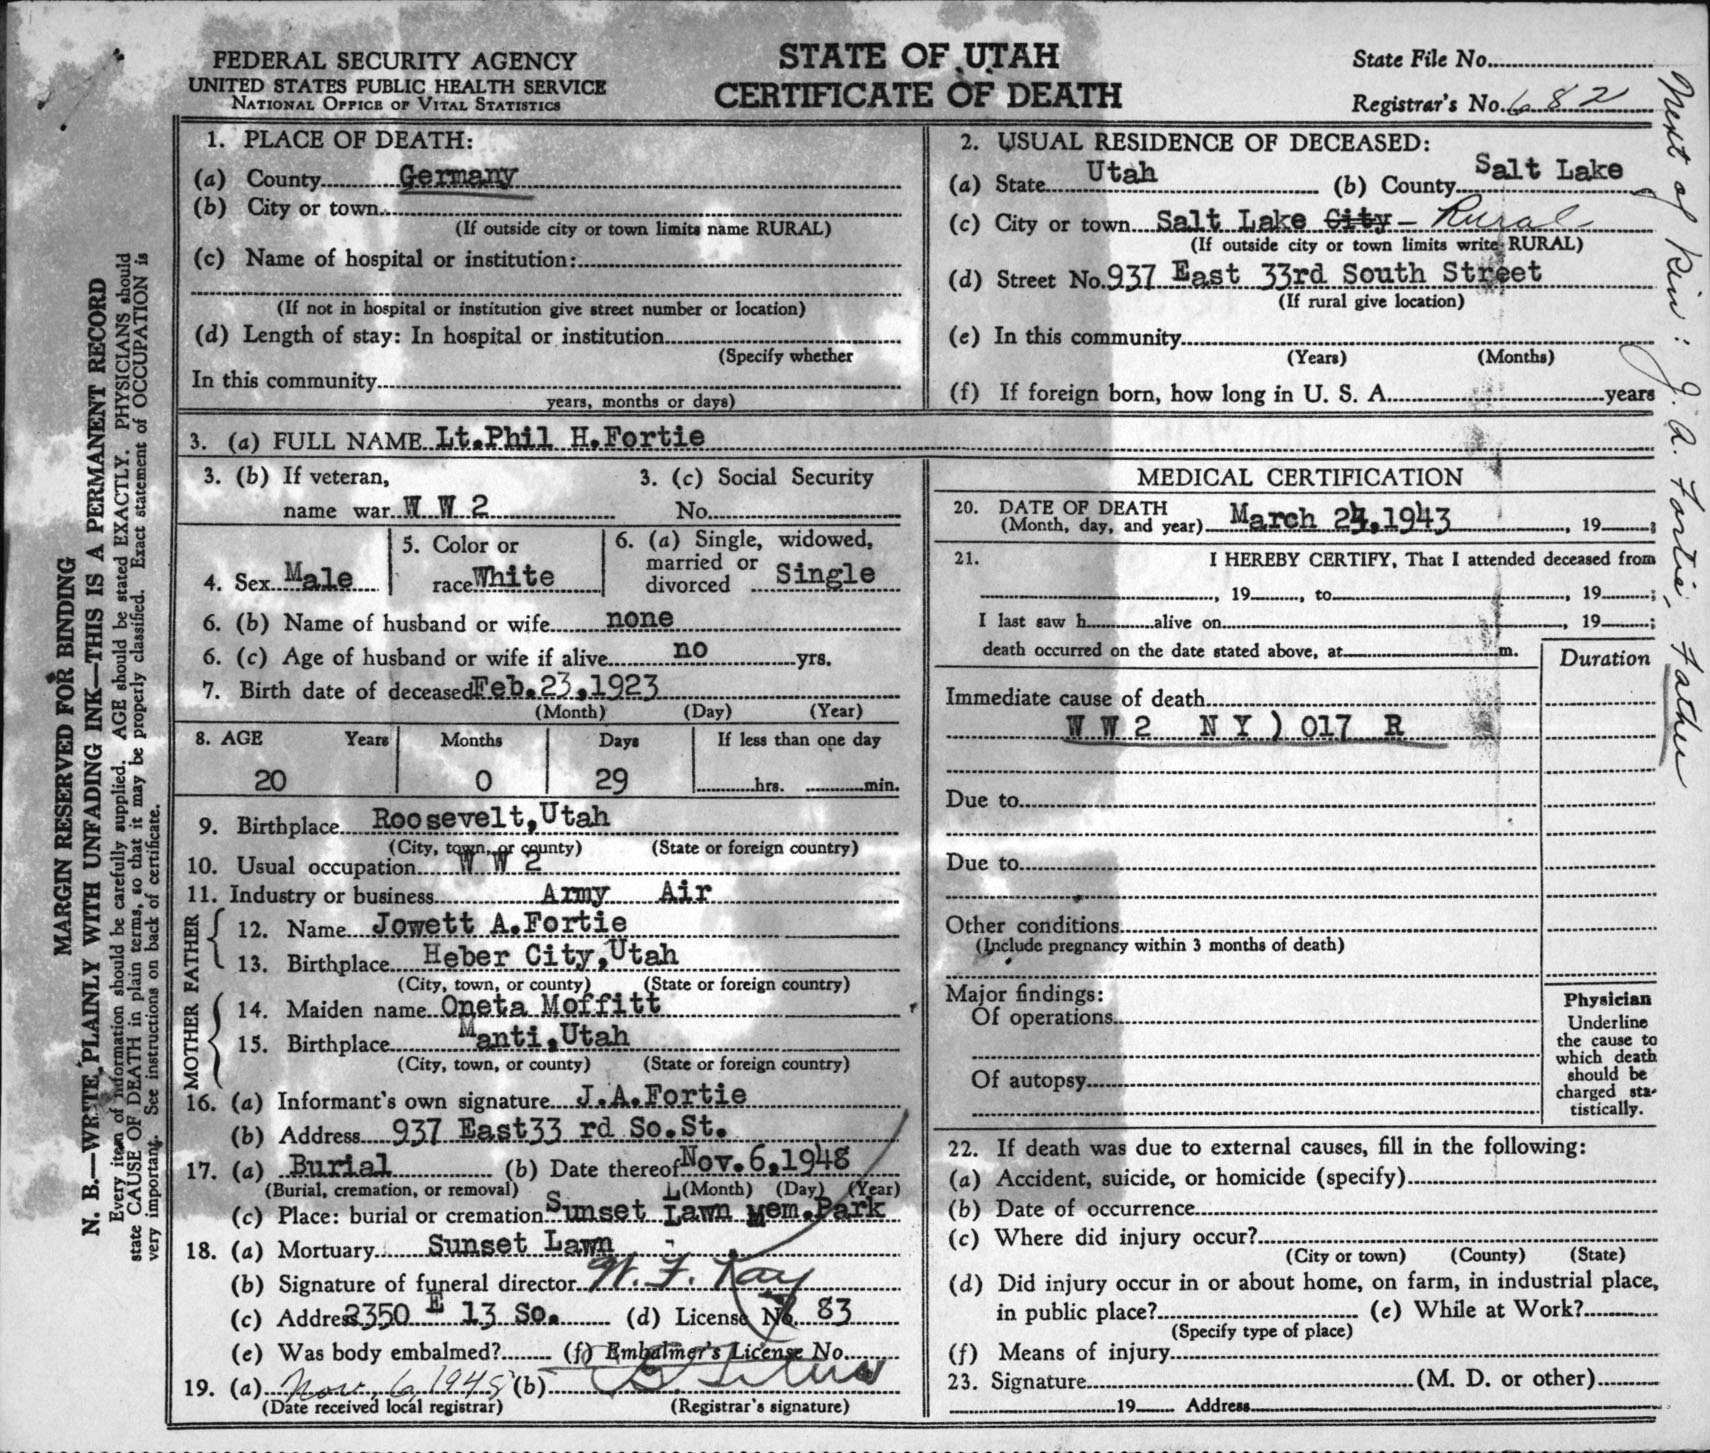 FEDERAL SECURITY AGENCY
UNITED STATES PUBLIC HEALTH SERVICE
NATIONAL OFFICE OF VITAL STATISTICS
STATE OF UTAH
CERTIFICATE OF DEATH
State File No.
Registrar's No. 682
1. PLACE OF DEATH:
(a) County Germany
(b) City or town
(If outside city or town limits name RURAL)
(c) Name of hospital or institution:
(If not in hospital or institution give street number or location)
(d) Length of stay: In hospital or institution
(Specify whether
In this community
years, months or days)
2. USUAL RESIDENCE OF DECEASED:
(a) State Utah (b) County Salt Lake
(c) City or town Salt Lake City - Rural
(If outside city or town limits write RURAL)
(d) Street No. 937 East 33rd South Street
(If rural give location)
(e) In this community
(Years) (Months)
(f) If foreign born, how long in U. S. A. years
3. (a) FULL NAME Lt.Phil H.Fortie
3. (b) If veteran,
name war W W 2
3. (c) Social Security
No.
4. Sex Male
5. Color or
race White
6. (a) Single, widowed,
married or
divorced Single
6. (b) Name of husband or wife none
6. (c) Age of husband or wife if alive no yrs.
7. Birth date of deceased Feb.23,1923
(Month) (Day) (Year)
8. AGE Years Months Days If less than one day
20 0 29 hrs. min.
9. Birthplace Roosevelt,Utah
(City, town, or county) (State or foreign country)
10. Usual occupation W W 2
11. Industry or business Army Air
FATHER
12. Name Jowett A.Fortie
13. Birthplace Heber City,Utah
(City, town, or county) (State or foreign country)
MOTHER
14. Maiden name Oneta Moffitt
15. Birthplace Manti,Utah
(City, town, or county) (State or foreign country)
16. (a) Informant's own signature J.A.Fortie
(b) Address 937 East33 rd So.St.
17. (a) Burial (b) Date thereof Nov.6,1948
(Burial, cremation, or removal) (Month) (Day) (Year)
(c) Place: burial or cremation Sunset Lawn Mem.Park
18. (a) Mortuary Sunset Lawn
(b) Signature of funeral director W. F. Kay
(c) Address 2350 E 13 So. (d) License No. 83
(e) Was body embalmed? (f) Embalmer's License No.
19. (a) Nov. 6, 1948 (b)
(Date received local registrar) (Registrar's signature)
MEDICAL CERTIFICATION
20. DATE OF DEATH
(Month, day, and year) March 24,1943, 19 ;
21. I HEREBY CERTIFY, That I attended deceased from
, 19 , to , 19 ;
I last saw h alive on , 19 ;
death occurred on the date stated above, at m.
Duration
Immediate cause of death
W W 2 N Y ) 017 R
Due to
Due to
Other conditions
(Include pregnancy within 3 months of death)
Major findings:
Of operations
Of autopsy
Physician
Underline
the cause to
which death
should be
charged sta-
tistically.
22. If death was due to external causes, fill in the following:
(a) Accident, suicide, or homicide (specify)
(b) Date of occurrence
(c) Where did injury occur?
(City or town) (County) (State)
(d) Did injury occur in or about home, on farm, in industrial place,
in public place? (e) While at Work?
(Specify type of place)
(f) Means of injury
23. Signature (M. D. or other)
19 Address
MARGIN RESERVED FOR BINDING
N. B.—WRITE PLAINLY WITH UNFADING INK—THIS IS A PERMANENT RECORD
Every item of information should be carefully supplied. AGE should be stated EXACTLY. PHYSICIANS should
state CAUSE OF DEATH in plain terms, so that it may be properly classified. Exact statement of OCCUPATION is
very important. See instructions on back of certificate.
Next of Kin: J. A. Fortie, Father